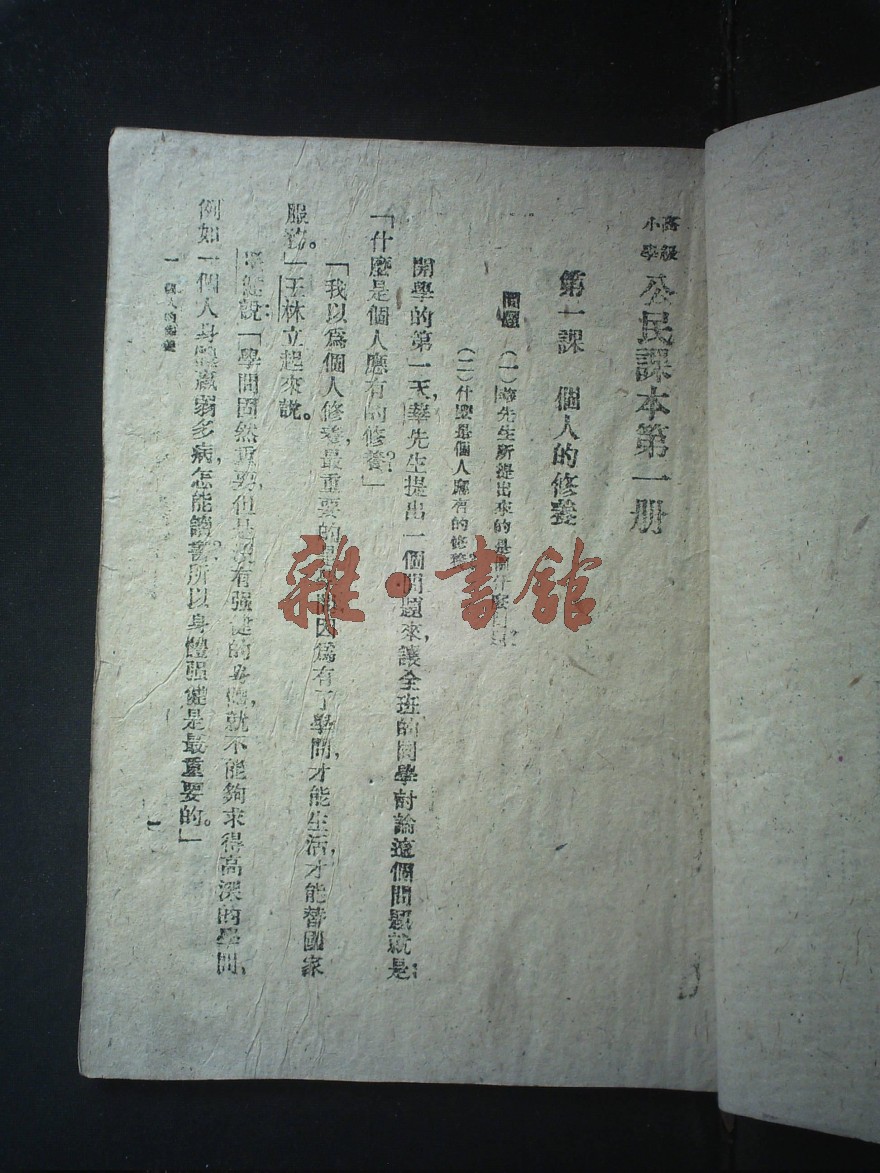 高級
小學
公民課本第一册
第一課　個人的修養
問題　(一)華先生所提出來的是個什麼問題
(二)什麼是個人應有的修養
開學的第一天,華先生提出一個問題來,讓全班的同學討論這個問題就是:
「什麼是個人應有的修養?」
「我以爲個人修養,最重要的是學問因爲有了學問,才能生活,才能替國家
服務。」王林立起來說。
說:「學問固然重要,但是沒有强健的身體,就不能夠求得高深的學問,
例如一個人身體羸弱多病,怎能讀書?所以身體强健是最重要的。」
一　個人的修養
一
雜·書舘